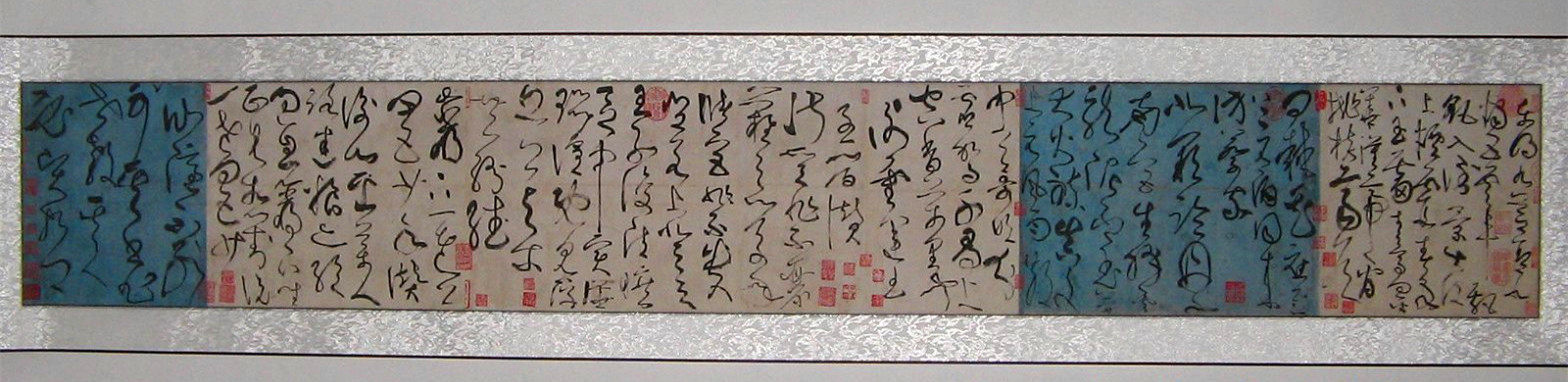 東明九芝蓋北
燭五雲車飄
飖入倒景出沒
上煙霞春泉
下玉霤青鳥向金
華漢帝看
桃核齊侯
問棘花應逐
上元酒同來
訪蔡家
北闕臨丹水
南宮生絳雲
龍泥印玉簡
大火煉真文
上元風雨散
中天歌吹
分靈駕千尋上
空香萬里聞
謝靈運王
子晉贊
淑質非不麗
難以之百年
儲宮非不貴
豈若上登天
王子復清曠
區中實譁
囂喧既見浮
丘公與爾
共紛繙
巖下一老公
四五少年贊
衡山採藥人
路迷糧亦絕
過息巖下坐
正見相對說
一老四五少
仙隱不可別
其書非世教
其人必賢哲